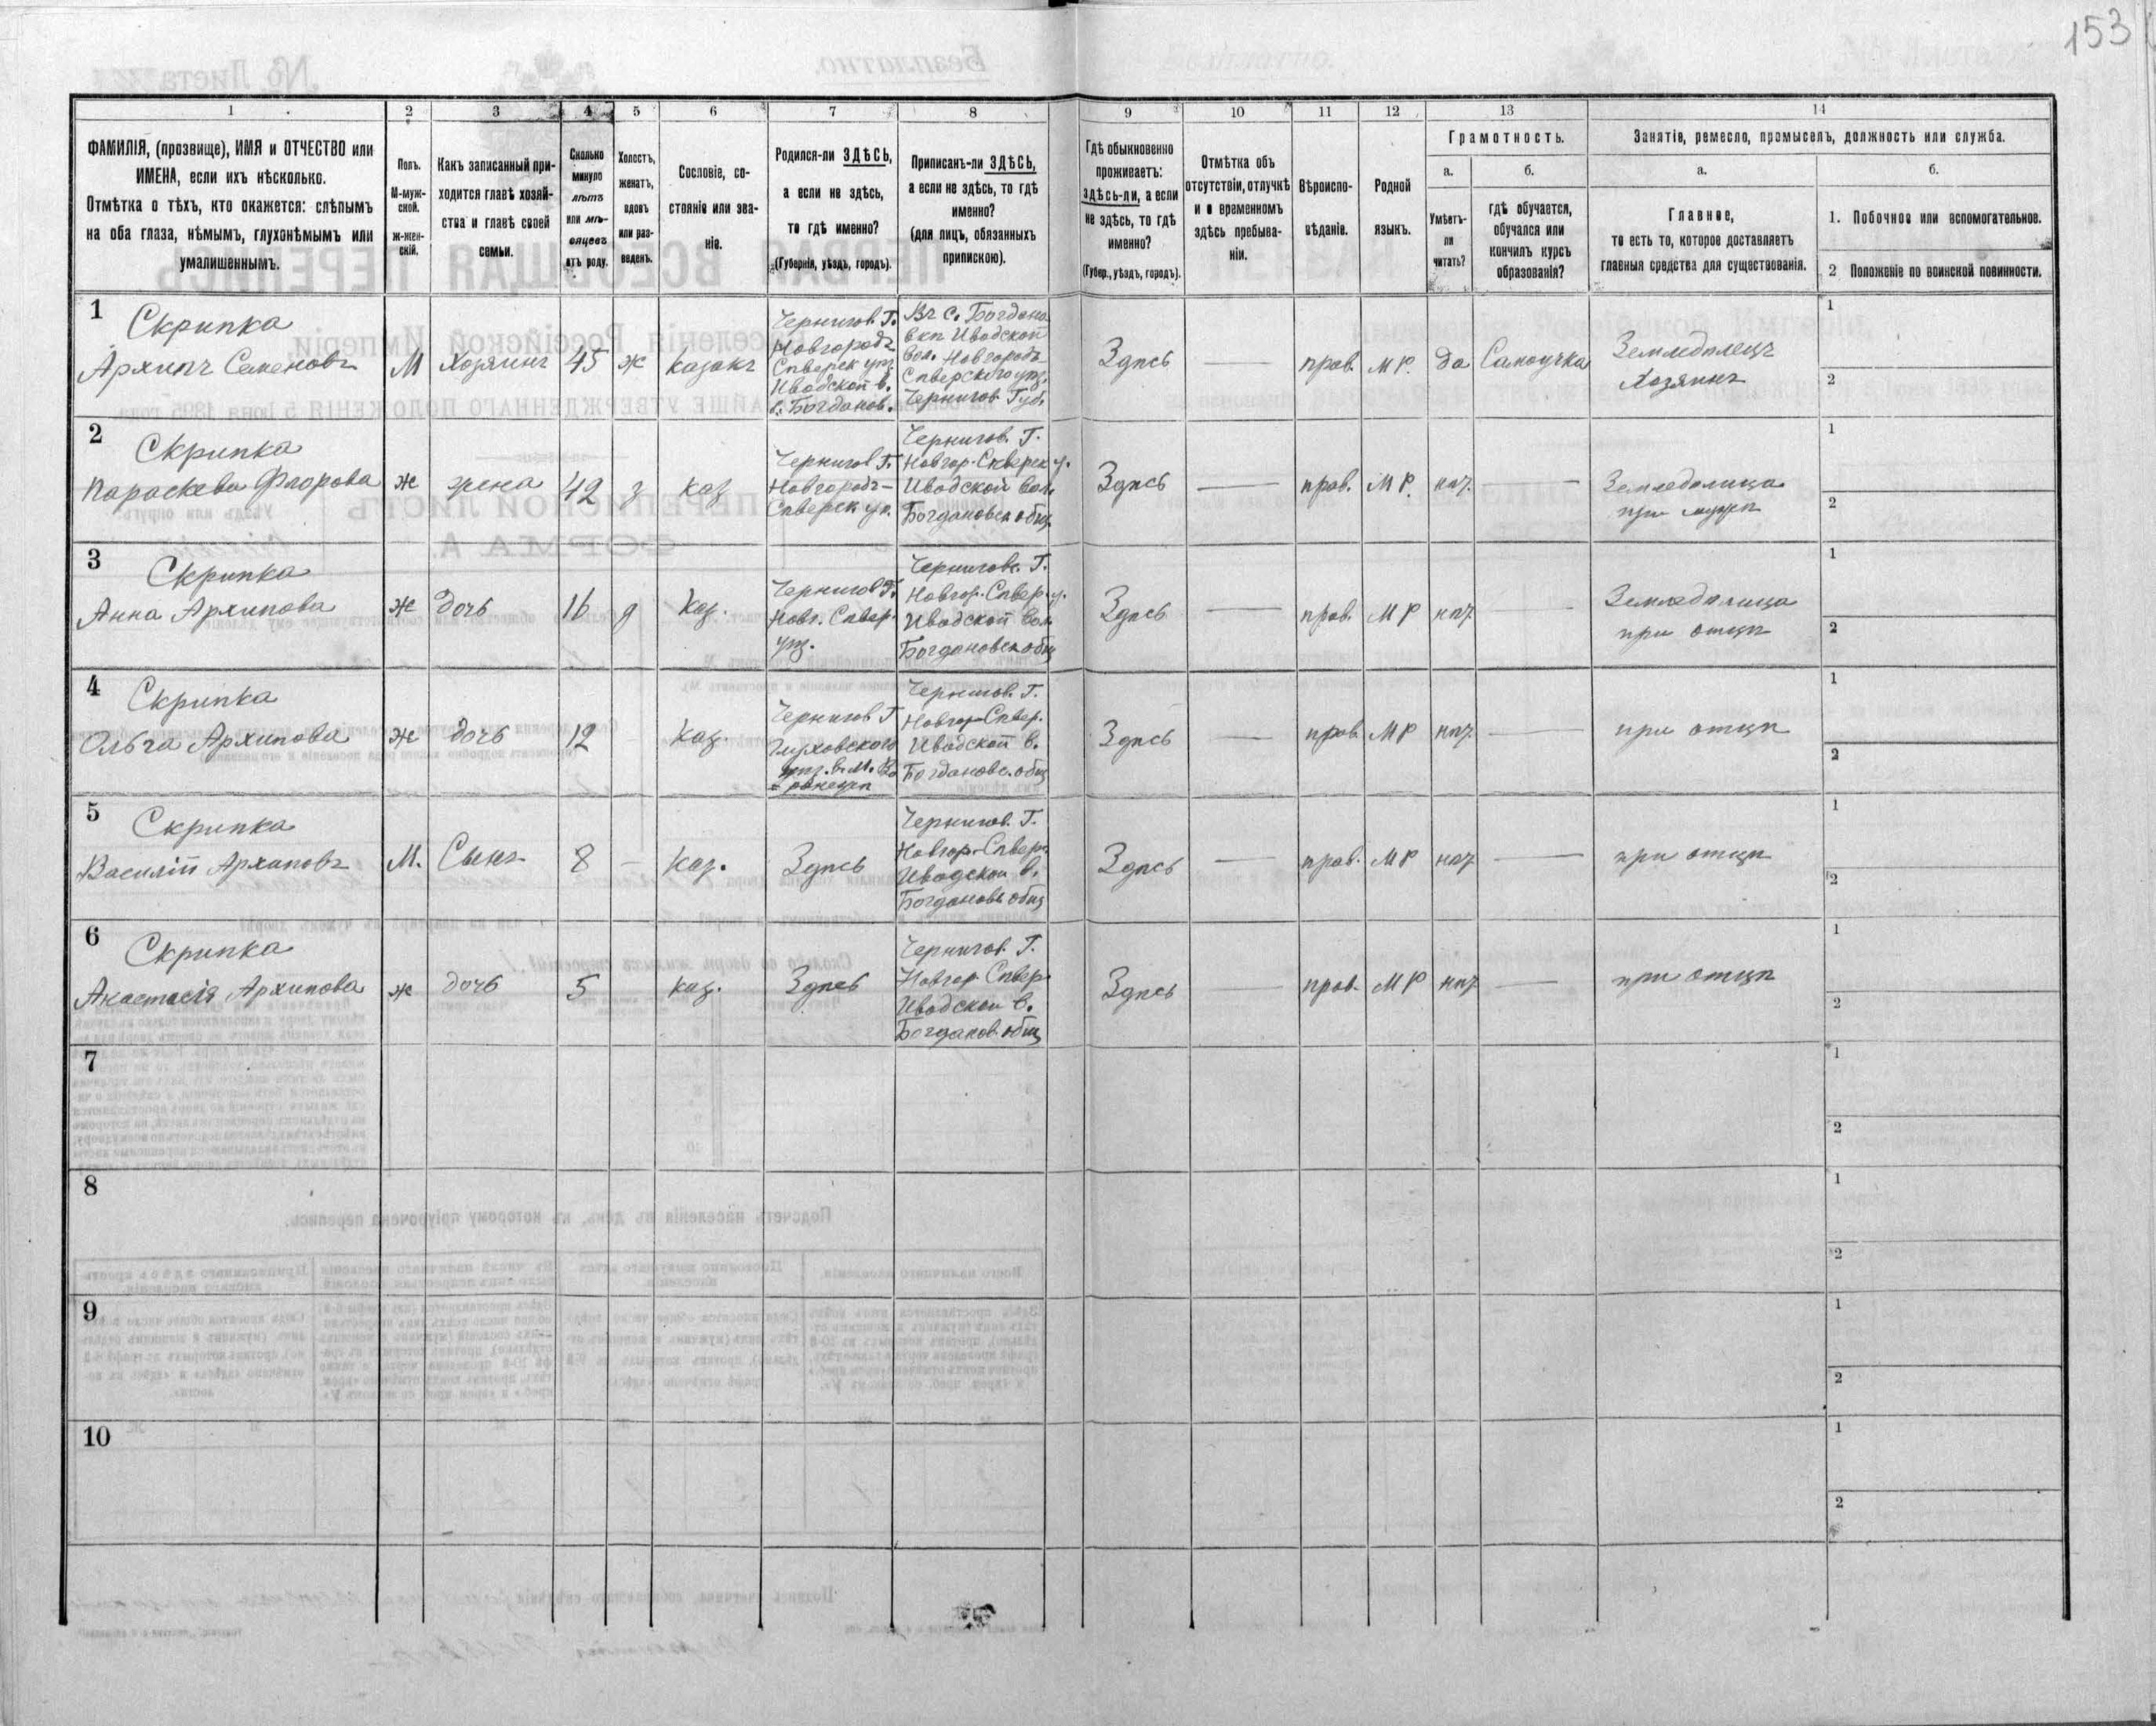 153
1
2
3
4
5
6
7
8
9
10
11
12
13
14
ФАМИЛІЯ, (прозвище), ИМЯ и ОТЧЕСТВО или
ИМЕНА, если ихъ нѣсколько.
Отмѣтка о тѣхъ, кто окажется: слѣпымъ
на оба глаза, нѣмымъ, глухонѣмымъ или
умалишеннымъ.
Полъ.
М-муж-
ской.
Ж-жен-
скій.
Какъ записанный при-
ходится главѣ хозяй-
ства и главѣ своей
семьи.
Сколько
минуло
лѣтъ
или мѣ-
сяцевъ
отъ роду.
Холостъ,
женатъ,
вдовъ
или раз-
веденъ.
Сословіе, со-
стояніе или зва-
ніе.
Родился-ли ЗДѢСЬ,
а если не здѣсь,
то гдѣ именно?
(Губернія, уѣздъ, городъ).
Приписанъ-ли ЗДѢСЬ,
а если не здѣсь, то гдѣ
именно?
(для лицъ, обязанныхъ
припискою).
Гдѣ обыкновенно
проживаетъ:
здѣсь-ли, а если
не здѣсь, то гдѣ
именно?
(Губер., уѣздъ, городъ).
Отмѣтка объ
отсутствіи, отлучкѣ
и о временномъ
здѣсь пребыва-
ніи.
Вѣроиспо-
вѣданіе.
Родной
языкъ.
Грамотность.
а.
Умѣетъ-
ли
читать?
б.
гдѣ обучается,
обучался или
кончилъ курсъ
образованія?
Занятіе, ремесло, промыселъ, должность или служба.
а.
Главное,
то есть то, которое доставляетъ
главныя средства для существованія.
б.
1. Побочное или вспомогательное.
2 Положеніе по воинской повинности.
1
Скрипка
Архипъ Семеновъ
М
Хозяинъ
45
ж
казакъ
Чернигов. Г.
Новгородъ
Сѣверск уѣз.
Иводской в.
с. Богданов.
Въ с. Богдано
вкѣ Иводской
вол. Новгородъ
Сѣверского уѣз.
Чернигов. Губ.
Здѣсь
прав.
М Р.
да
Самоучка
Земледѣлецъ
Хозяинъ
1
2
2
Скрипка
Параскева Флорова
ж
жена
42
з
каз
Чернигов Г.
Новгородъ-
Сѣверск уѣ.
Чернигов. Г.
Новгор-Сѣверск у.
Иводской вол.
Богдановск общ.
Здѣсь
прав.
М Р.
нѣт.
Земледѣлица
при мужѣ
1
2
3
Скрипка
Анна Архипова
ж
дочь
16
д
каз.
Чернигов Г.
Новг. Сѣвер.
уѣз.
Чернигов. Г.
Новгор. Сѣвер. у.
Иводской вол.
Богдановск общ
Здѣсь
прав.
М Р
нѣт
Земледѣлица
при отцѣ
1
2
4
Скрипка
Ольга Архипова
ж
дочь
12
каз.
Чернигов Г
Глуховского
уѣз. в м. Во
=ронежѣ
Чернигов. Г.
Новгор-Сѣвер.
Иводской в.
Богдановс. общ
Здѣсь
прав
М Р
нѣт
при отцѣ
1
2
5
Скрипка
Василій Архиповъ
М.
Сынъ
8
каз.
Здѣсь
Чернигов. Г.
Новгор-Сѣвер.
Иводской в.
Богдановв общ
Здѣсь
прав.
М Р
нѣт
при отцѣ
1
2
6
Скрипка
Анастасія Архипова
ж
дочь
5
каз.
Здѣсь
Чернигов. Г.
Новгор Сѣвер.
Иводской в.
Богданов. общ
Здѣсь
прав.
М Р
нѣт
при отцѣ
1
2
7
1
2
8
1
2
9
1
2
10
1
2